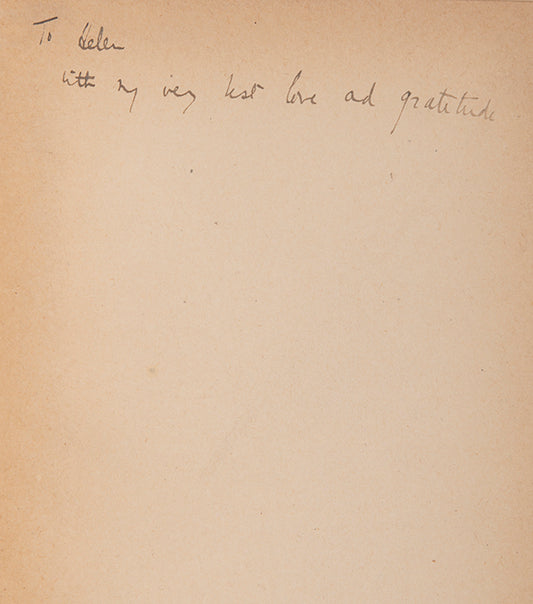 To Helen
with my very best love and gratitude